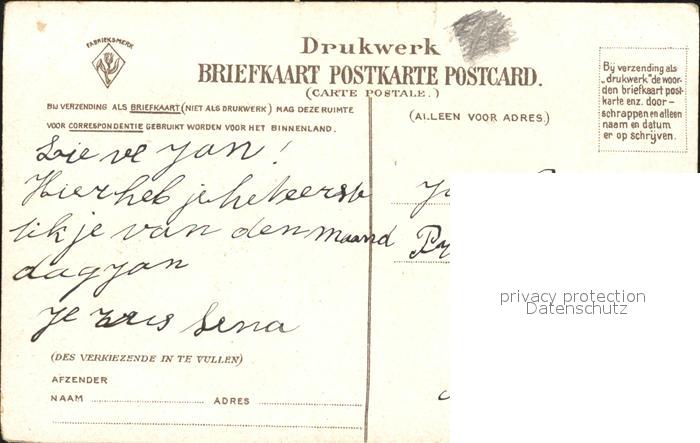 FABRIEKSMERK
Drukwerk
BRIEFKAART POSTKARTE POSTCARD.
(CARTE POSTALE.)
BIJ VERZENDING ALS BRIEFKAART (NIET ALS DRUKWERK) MAG DEZE RUIMTE
VOOR CORRESPONDENTIE GEBRUIKT WORDEN VOOR HET BINNENLAND.
(ALLEEN VOOR ADRES.)
Bij verzending als
„drukwerk" de woor-
den briefkaart post-
karte enz. door-
schrappen en alleen
naam en datum
er op schrijven.
Lieve Jan!
Hier heb je het eerste
tikje van den maand
dag Jan
je zus Lena
privacy protection
Datenschutz
(DES VERKIEZENDE IN TE VULLEN)
AFZENDER
NAAM ADRES